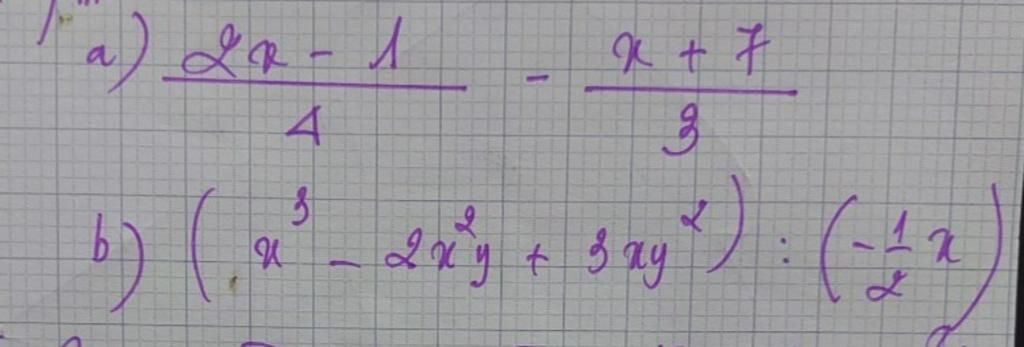 a) \frac{2x - 1}{4} - \frac{x + 7}{3}
b) (x^3 - 2x^2y + 3xy^2) : (-\frac{1}{2}x)